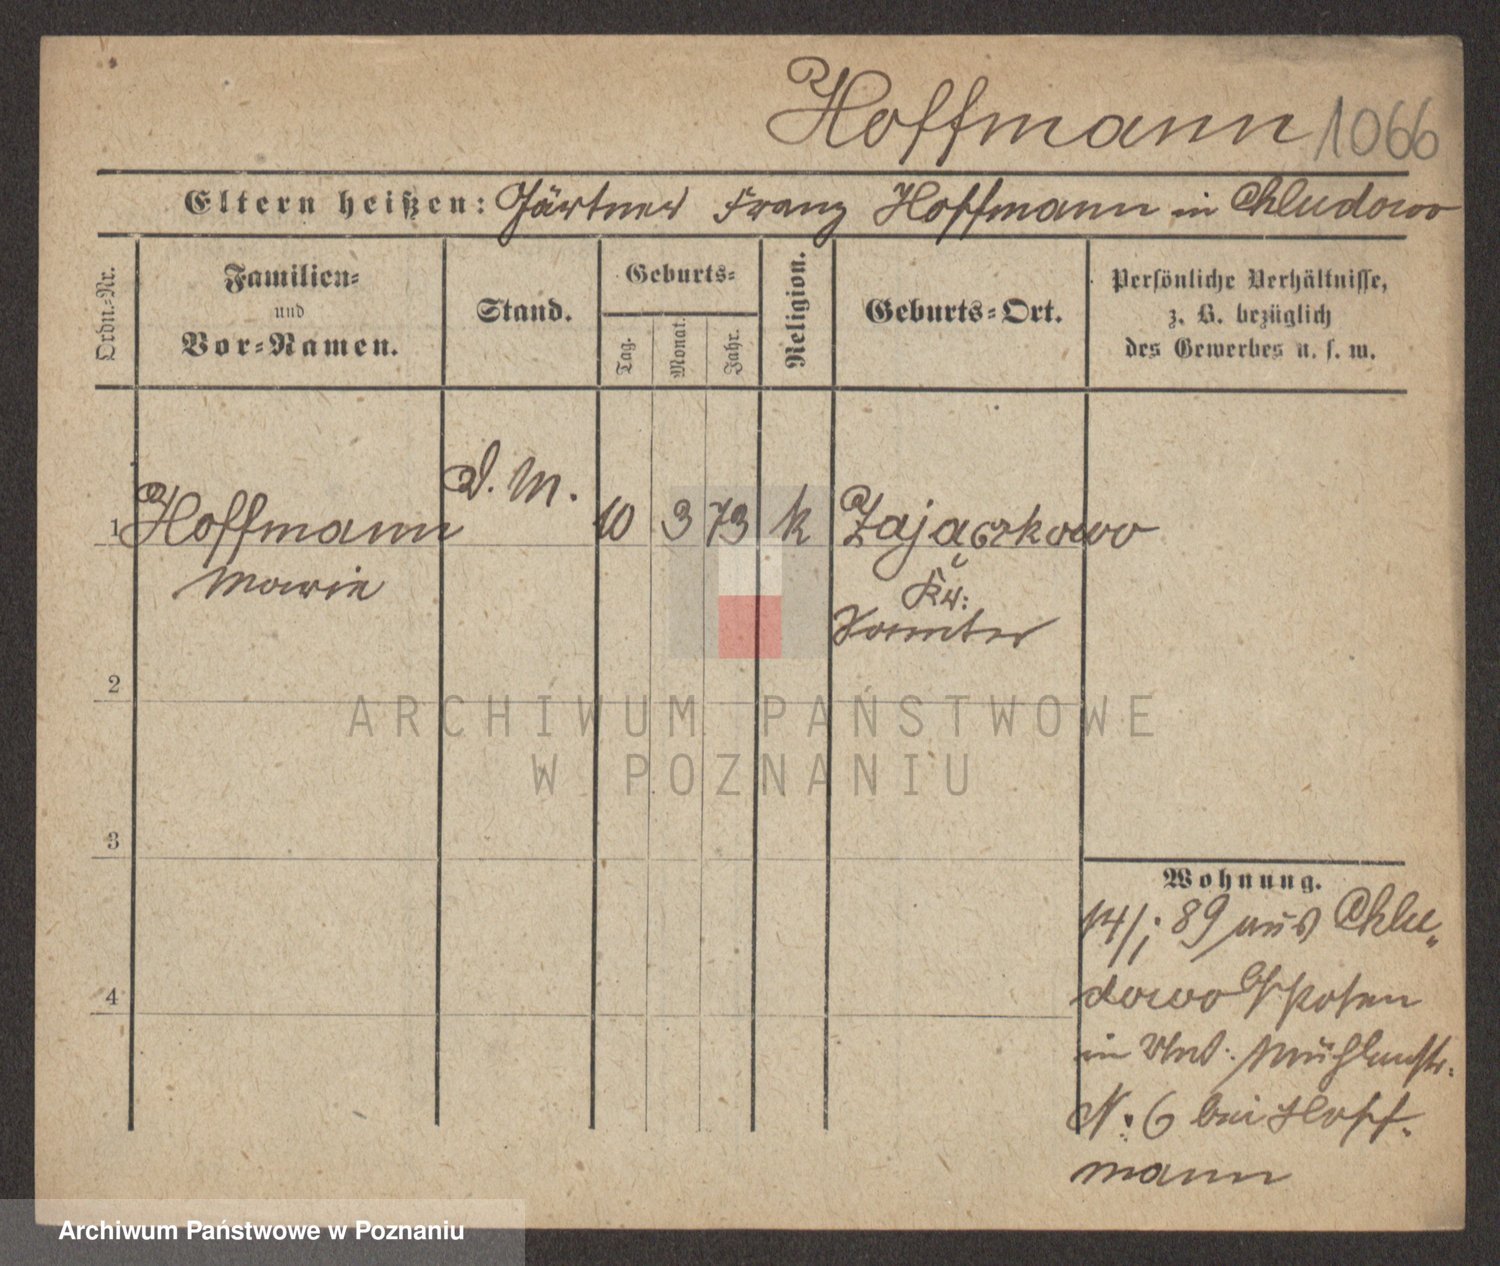 Hoffmann 1066
Eltern heißen: Gärtner Franz Hoffmann in Chludowo
Ordn.-Nr.
Familien-
und
Vor-Namen.
Stand.
Geburts-
Tag.
Monat.
Jahr.
Religion.
Geburts-Ort.
Persönliche Verhältnisse,
z. B. bezüglich
des Gewerbes u. s. w.
1 Hoffmann D. M. 10 3 73 k Zajączkowo
Marie Kr:
Samter
2
3
4
Wohnung.
14/; 89 aus Chlu„
dowo Posen
in Unt: Mühlenstr.
N: 6 bei Hoff-
mann
ARCHIWUM PAŃSTWOWE
W POZNANIU
Archiwum Państwowe w Poznaniu